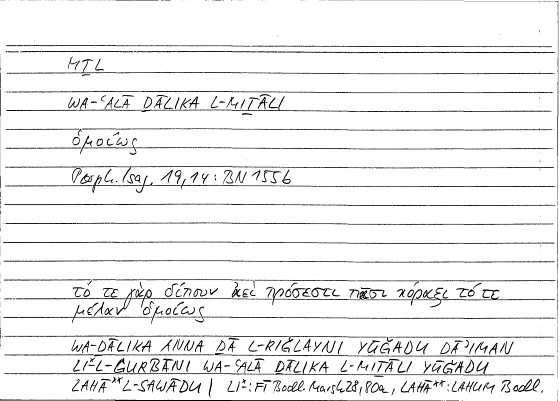 MṮL
WA-ʿALĀ ḎĀLIKA L-MIṮĀLI
ὁμοίως
Porph. Isag. 19,14: BN 155b
τό τε γὰρ δίπουν ἀεὶ πρόσεστι πᾶσι κόραξι τό τε
μέλαν ὁμοίως
WA-ḎĀLIKA ANNA ḎĀ L-RIǦLAYNI YŪǦADU DĀʾIMAN
LI* L-ĠURBĀNI WA-ʿALĀ ḎĀLIKA L-MIṮĀLI YŪǦADU
LAHĀ** L-SAWĀDU | LI*: FĪ Bodl. Marsh 28, 80a, LAHĀ**: LAHUM Bodl.